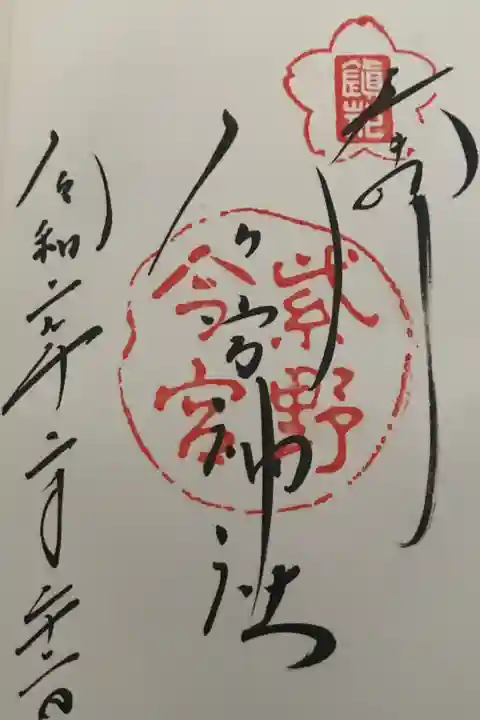 奉拝
鎮花
今宮神社
紫野
今宮
令和六年二月二十二日